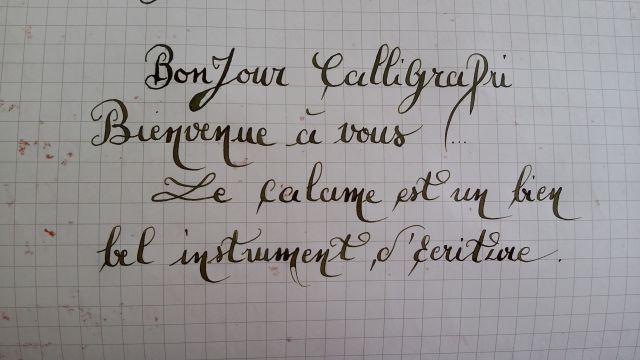 BonJour Calligrafri
Bienvenue à vous ...
Le calame est un bien
bel instrument d'écriture.